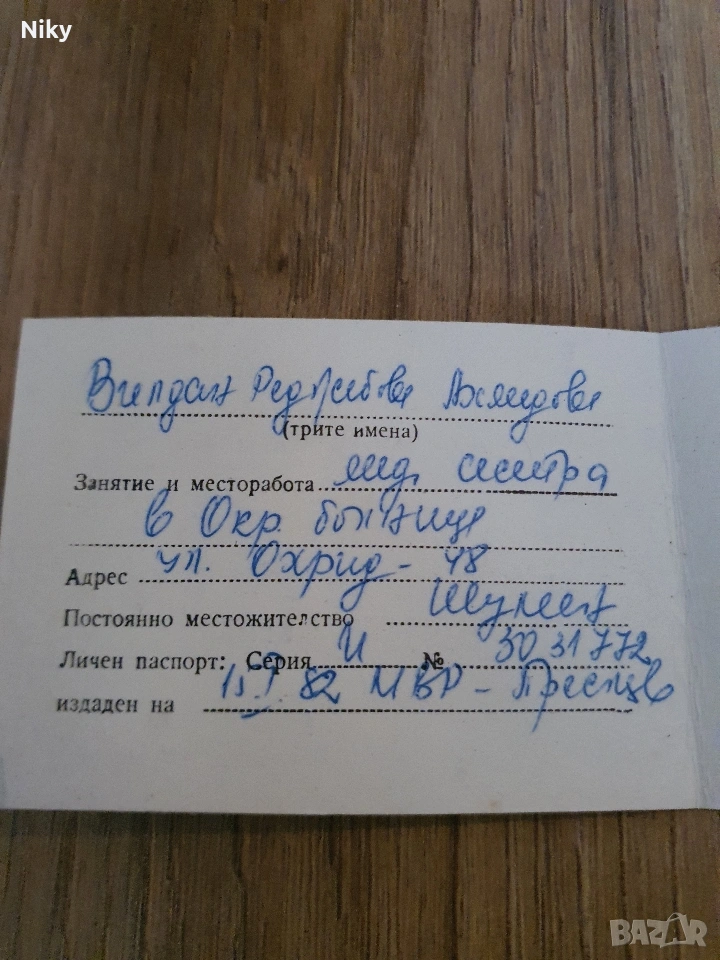 Niky
Вилдан Реджебова Ахмедова
(трите имена)
Занятие и месторабота мед. сестра
в Окр. болница
Адрес ул. Охрид - 48
Постоянно местожителство Шумен
Личен паспорт: Серия И № 3031772
издаден на 15.I.82 МВР - Преслав
BAZAR